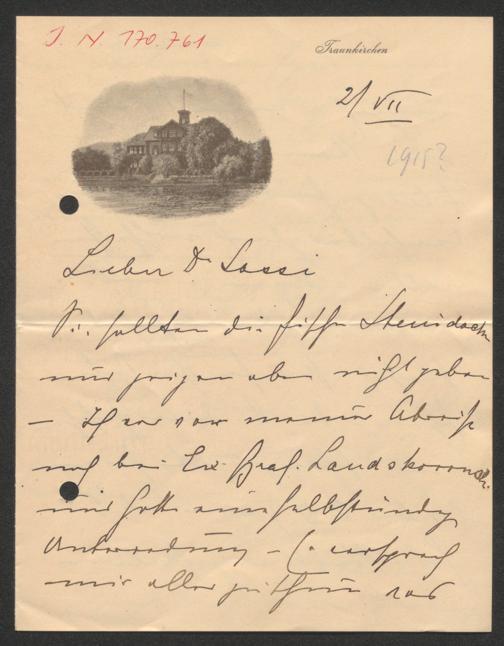 J. N. 170.761
Traunkirchen
2/VII
1915?
Lieber Dr Sassi
Sie sollten die Fische Steindachn
nur zeigen aber nicht geben
— Ich war vor meiner Abreise
noch bei Ex. Graf. Landskoronski
und hatte eine halbstündige
Unterredung — Er versprach
mir alles zu thun was